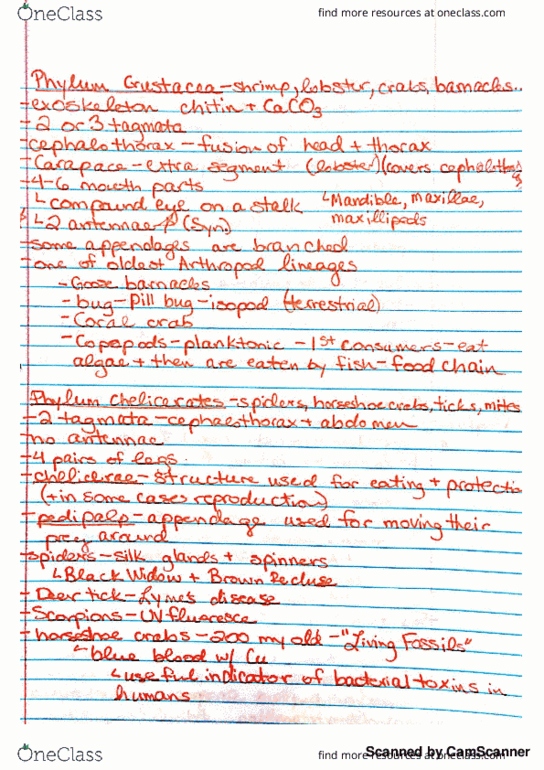 OneClass
find more resources at oneclass.com
Phylum Crustacea - shrimp, lobster, crabs, barnacks..
- exoskeleton chitin + CaCO3
- 2 or 3 tagmata
- cephalothorax - fusion of head + thorax
- Carapace - extra segment (lobster) (covers cephalothorax
- 4-6 mouth parts
↳ compound eye on a stalk ↳ Mandible, maxillae,
↳ 2 antennae (Syn) maxillipeds
- some appendages are branched
- one of oldest Arthropod lineages
- Goose barnacks
- bug - Pill bug - isopod (terrestrial)
- Coral crab
- Copepods - planktonic - 1st consumers - eat
algae + then are eaten by fish - food chain
Phylum Chelicerates - spiders, horseshoe crabs, ticks, mites
- 2 tagmata - cephaeothorax + abdomen
no antennae
- 4 pairs of legs
- chelicerae - structure used for eating + protectio
(+ in some cases reproduction)
- pedipalp - appendage used for moving their
prey around
- spiders - silk glands + spinners
↳ Black Widow + Brown Recluse
- Deer tick - Lyme's disease
- Scorpions - UV fluoresce
- horseshoe crabs - 200 my old - "Living Fossils"
↳ blue blood w/ Cu
↳ useful indicator of bacterial toxins in
humans
OneClass
find more resources at oneclass.com
Scanned by CamScanner